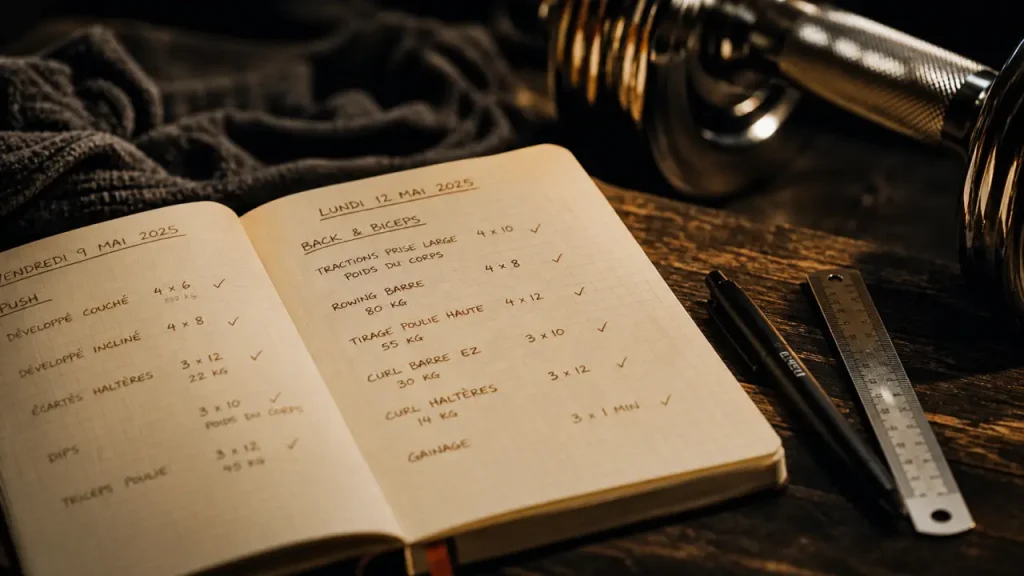 VENDREDI 9 MAI 2025
PUSH
DÉVELOPPÉ COUCHÉ 4 x 6 ✓
DÉVELOPPÉ INCLINÉ 4 x 8 ✓
ÉCARTÉS HALTÈRES 3 x 12 ✓
22 KG
DIPS 3 x 10 ✓
POIDS DU CORPS
TRICEPS POULIE 3 x 12 ✓
45 KG
LUNDI 12 MAI 2025
BACK & BICEPS
TRACTIONS PRISE LARGE 4 x 10 ✓
POIDS DU CORPS
ROWING BARRE 4 x 8 ✓
80 KG
TIRAGE POULIE HAUTE 4 x 12 ✓
55 KG
CURL BARRE EZ 3 x 10 ✓
30 KG
CURL HALTÈRES 3 x 12 ✓
14 KG
GAINAGE 3 x 1 MIN ✓